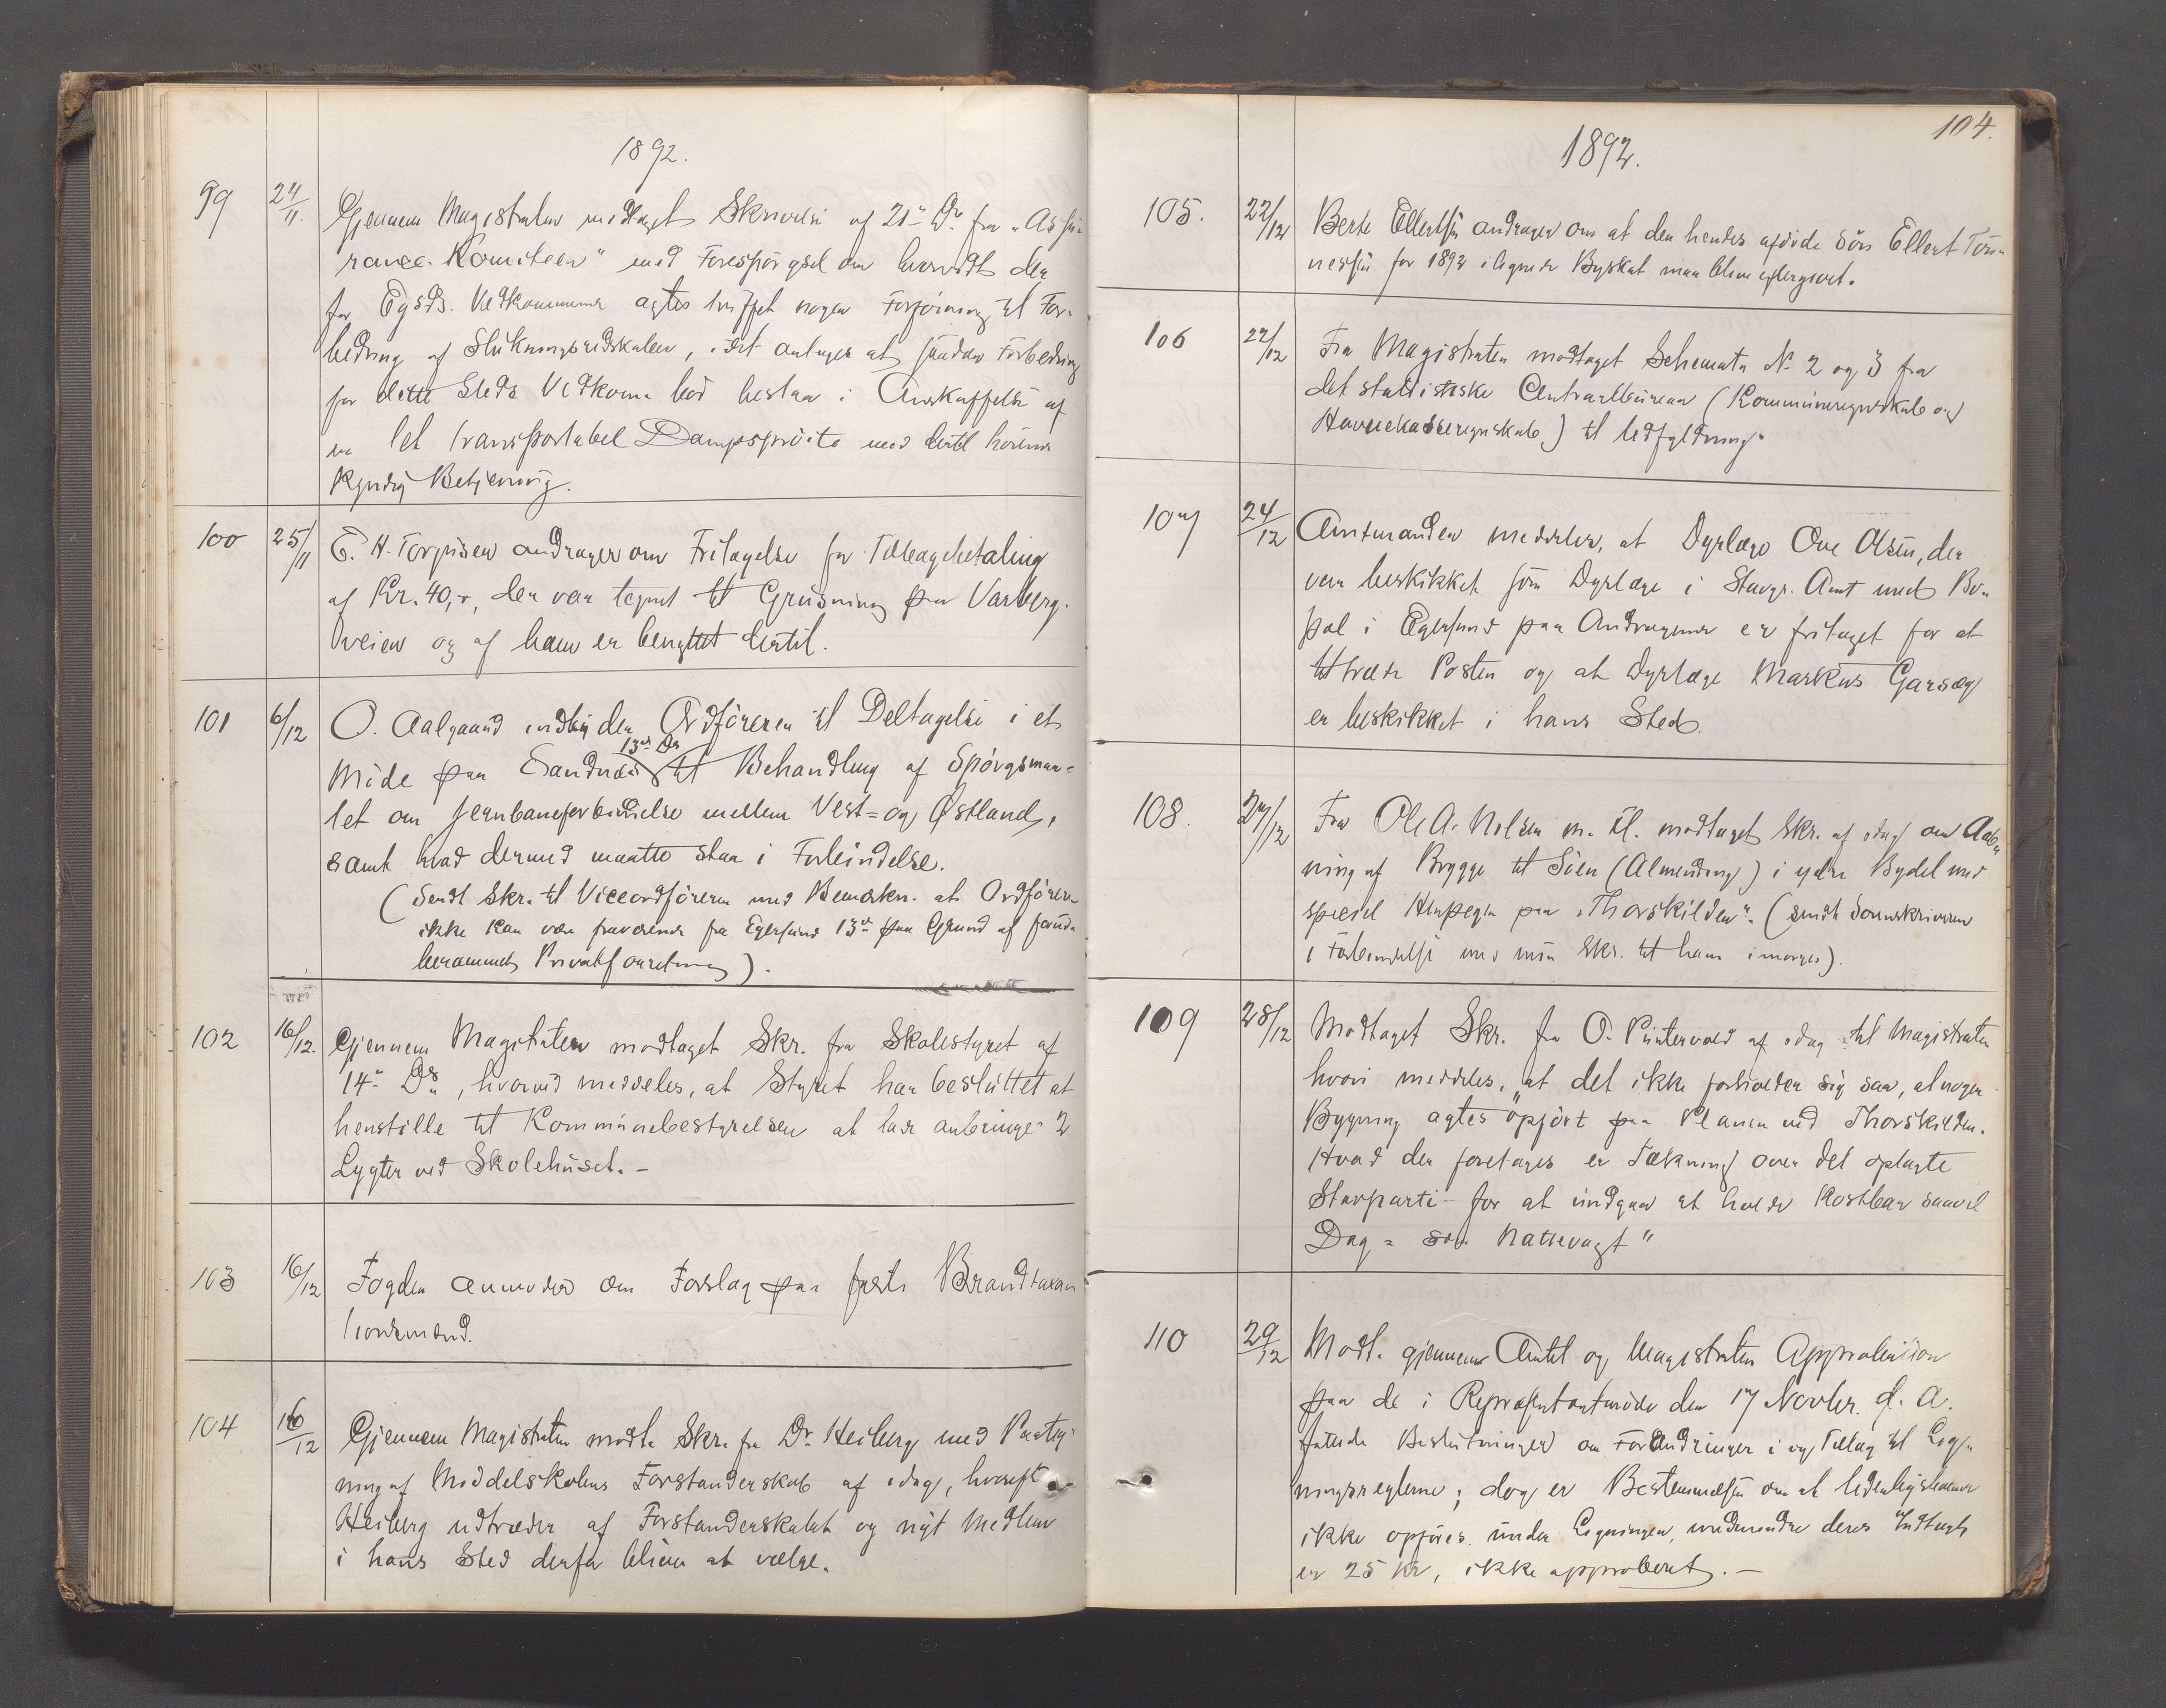 1892.
99 24/11. Gjennem Magistraten modtaget Skrivelse af 21de Ds. fra "Assu-
rance-Komiteen" med Forespørgsel om hvorvidt der
for Egsds. Vedkommende agtes truffet nogen Forføining til For-
bedring af Slukningsredskaber, idet antages at saadan Forbedring
for dette Steds Vedkom. bør bestaa i Anskaffelse af
en let transportabel Dampsprøite med dertil hørende
kyndig Betjening.
100 25/11 E. H. Torgusen andrager om Fritagelse for Tilbagebetaling
af Kr. 40,-, der var tegnet til Grusning paa Varberg-
veien og af ham er benyttet dertil.
101 6/12 O. Aalgaard indbyder Ordføreren til Deltagelse i et
13de Ds
Møde paa Sandnæs til Behandling af Spørgsmaa-
let om Jernbaneforbindelse mellem Vest= og Østland,
samt hvad dermed maatte staa i Forbindelse.
(Sendt Skr. til Viceordføreren med Bemærkn. at Ordføreren
ikke kan være fraværende fra Egersund 13de paa Grund af forud
berammet Privatforretning).
102 16/12. Gjennem Magistraten modtaget Skr. fra Skolestyret af
14de Ds, hvorved meddeles, at Styret har besluttet at
henstille til Kommunebestyrelsen at lade anbringe 2
Lygter ved Skolehuset. -
103 16/12 Fogden anmoder om Forslag paa faste Brandtaxa-
tionsmænd.
104 16/12 Gjennem Magistraten modt. Skr. fra Dr. Heiberg med Paateg-
ning af Middelskolens Forstanderskab af idag, hvorefter
Heiberg udtræder af Forstanderskabet og nyt Medlem
i hans Sted derfor bliver at vælge.
104.
1892.
105. 22/12 Berte Ellertsen andrager om at den hendes afdøde Søn Ellert Tøn-
nessen for 1892 ilignede Byskat maa blive eftergivet.
106 22/12 Fra Magistraten modtaget Schemata No 2 og 3 fra
det statistiske Centralbureau (Kommuneregnskab og
Havnekasseregnskab) til Udfyldning.
107 24/12 Amtmanden meddeler, at Dyrlæge Ove Olsen, der
var beskikket som Dyrlæge i Stavgr. Amt med Bo-
pæl i Egersund paa Andragende er fritaget for at
tiltræde Posten og at Dyrlæge Markus Garsæg
er beskikket i hans Sted.
108. 27/12 Fra Ole A. Nilsen m. fl. modtaget Skr. af idag om Aab-
ning af Brygge til Søen (Almending) i ydre Bydel med
speciel Henpegen paa "Thorskilden". (sendt Sorenskriveren
i Forbindelse med min Skr. til ham imorges).
109 28/12 Modtaget Skr. fra O. Puntervold af idag til Magistraten
hvori meddeles, at det ikke forholder sig saa, at nogen
Bygning agtes "opført paa Planen ved Thorskilden.
Hvad der foretages er Tækning over det oplagte
Stavparti for at undgaa at holde kostbar saavel
Dag= som Nattevagt"
110 29/12 Modt. gjennem Amtet og Magistraten Approbation
paa de i Repræsentantmøde den 17 Novbr. d. A.
fattede Beslutninger om Forandringer i og Tillæg til Lig-
ningsreglerne; dog er Bestemmelsen om at Udenbysboende
ikke opføres under Ligningen, medmindre deres Indtægt
er 25 Kr, ikke approberet. -